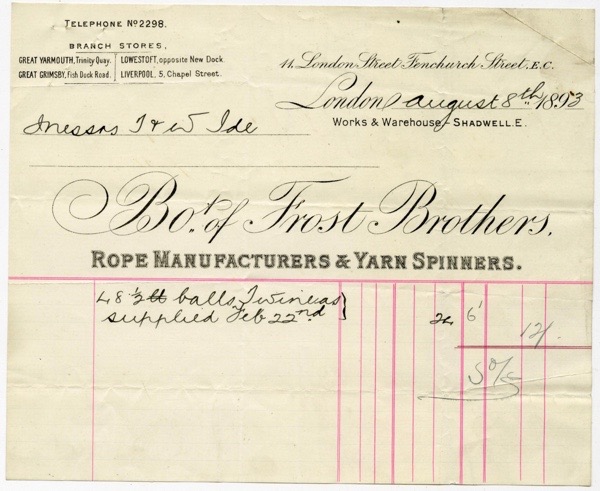 TELEPHONE Nº 2298.
BRANCH STORES,
GREAT YARMOUTH, Trinity Quay. LOWESTOFT, opposite New Dock.
GREAT GRIMSBY, Fish Dock Road. LIVERPOOL, 5, Chapel Street.
11, London Street Fenchurch Street, E.C.
London august 8th 1893
Works & Warehouse - SHADWELL. E.
Messrs T & W Ide
Bot. of Frost Brothers,
ROPE MANUFACTURERS & YARN SPINNERS.
48 ½ lb balls Twine as
supplied Feb 22nd 24 6' 12/.